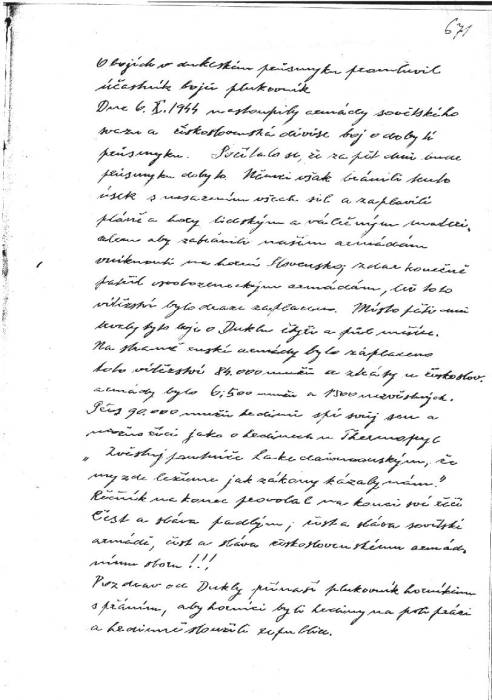 671
O bojích v dukelském průsmyku promluvil
účastník bojů plukovník
Dne 6. X. 1944 nastoupily armády sovětského
svazu a československá divise boj o dobytí
průsmyku. Počítalo se, že za pět dnů bude
průsmyk dobyto. Němci však bránili tento
úsek s nasazením všech sil a zaplavili
pláně a hory lidským a válečným materi-
alem aby zabránili našim armádám
vniknouti na horní Slovensko, zdar konečně
patřil osvobozeneckým armádám, leč toto
vítězství bylo draze zaplaceno. Místo pěti dnů
trvaly tyto boje o Duklu čtyři a půl měsíce.
Na straně ruské armády bylo zaplaceno
toto vítězství 84.000 mužů a ztráty u českoslov.
armády bylo 6.500 mužů a 1800 nezvěstných.
Přes 90.000 mužů hrdinů spí svůj sen a
možno říci jako o hrdinech u Thermopyl
„ Zvěstuj poutníče Lakedaimonským, že
my zde ležíme jak zákony kázaly nám."
Řečník na konec provolal na konci své řeči
Čest a sláva padlým, čest a sláva sovětské
armádě, čest a sláva československému armád-
nímu sboru !!!
Pozdrav od Dukly přináší plukovník horníkům
s přáním, aby horníci byli hrdiny na poli práci
a hrdinně sloužili republice.